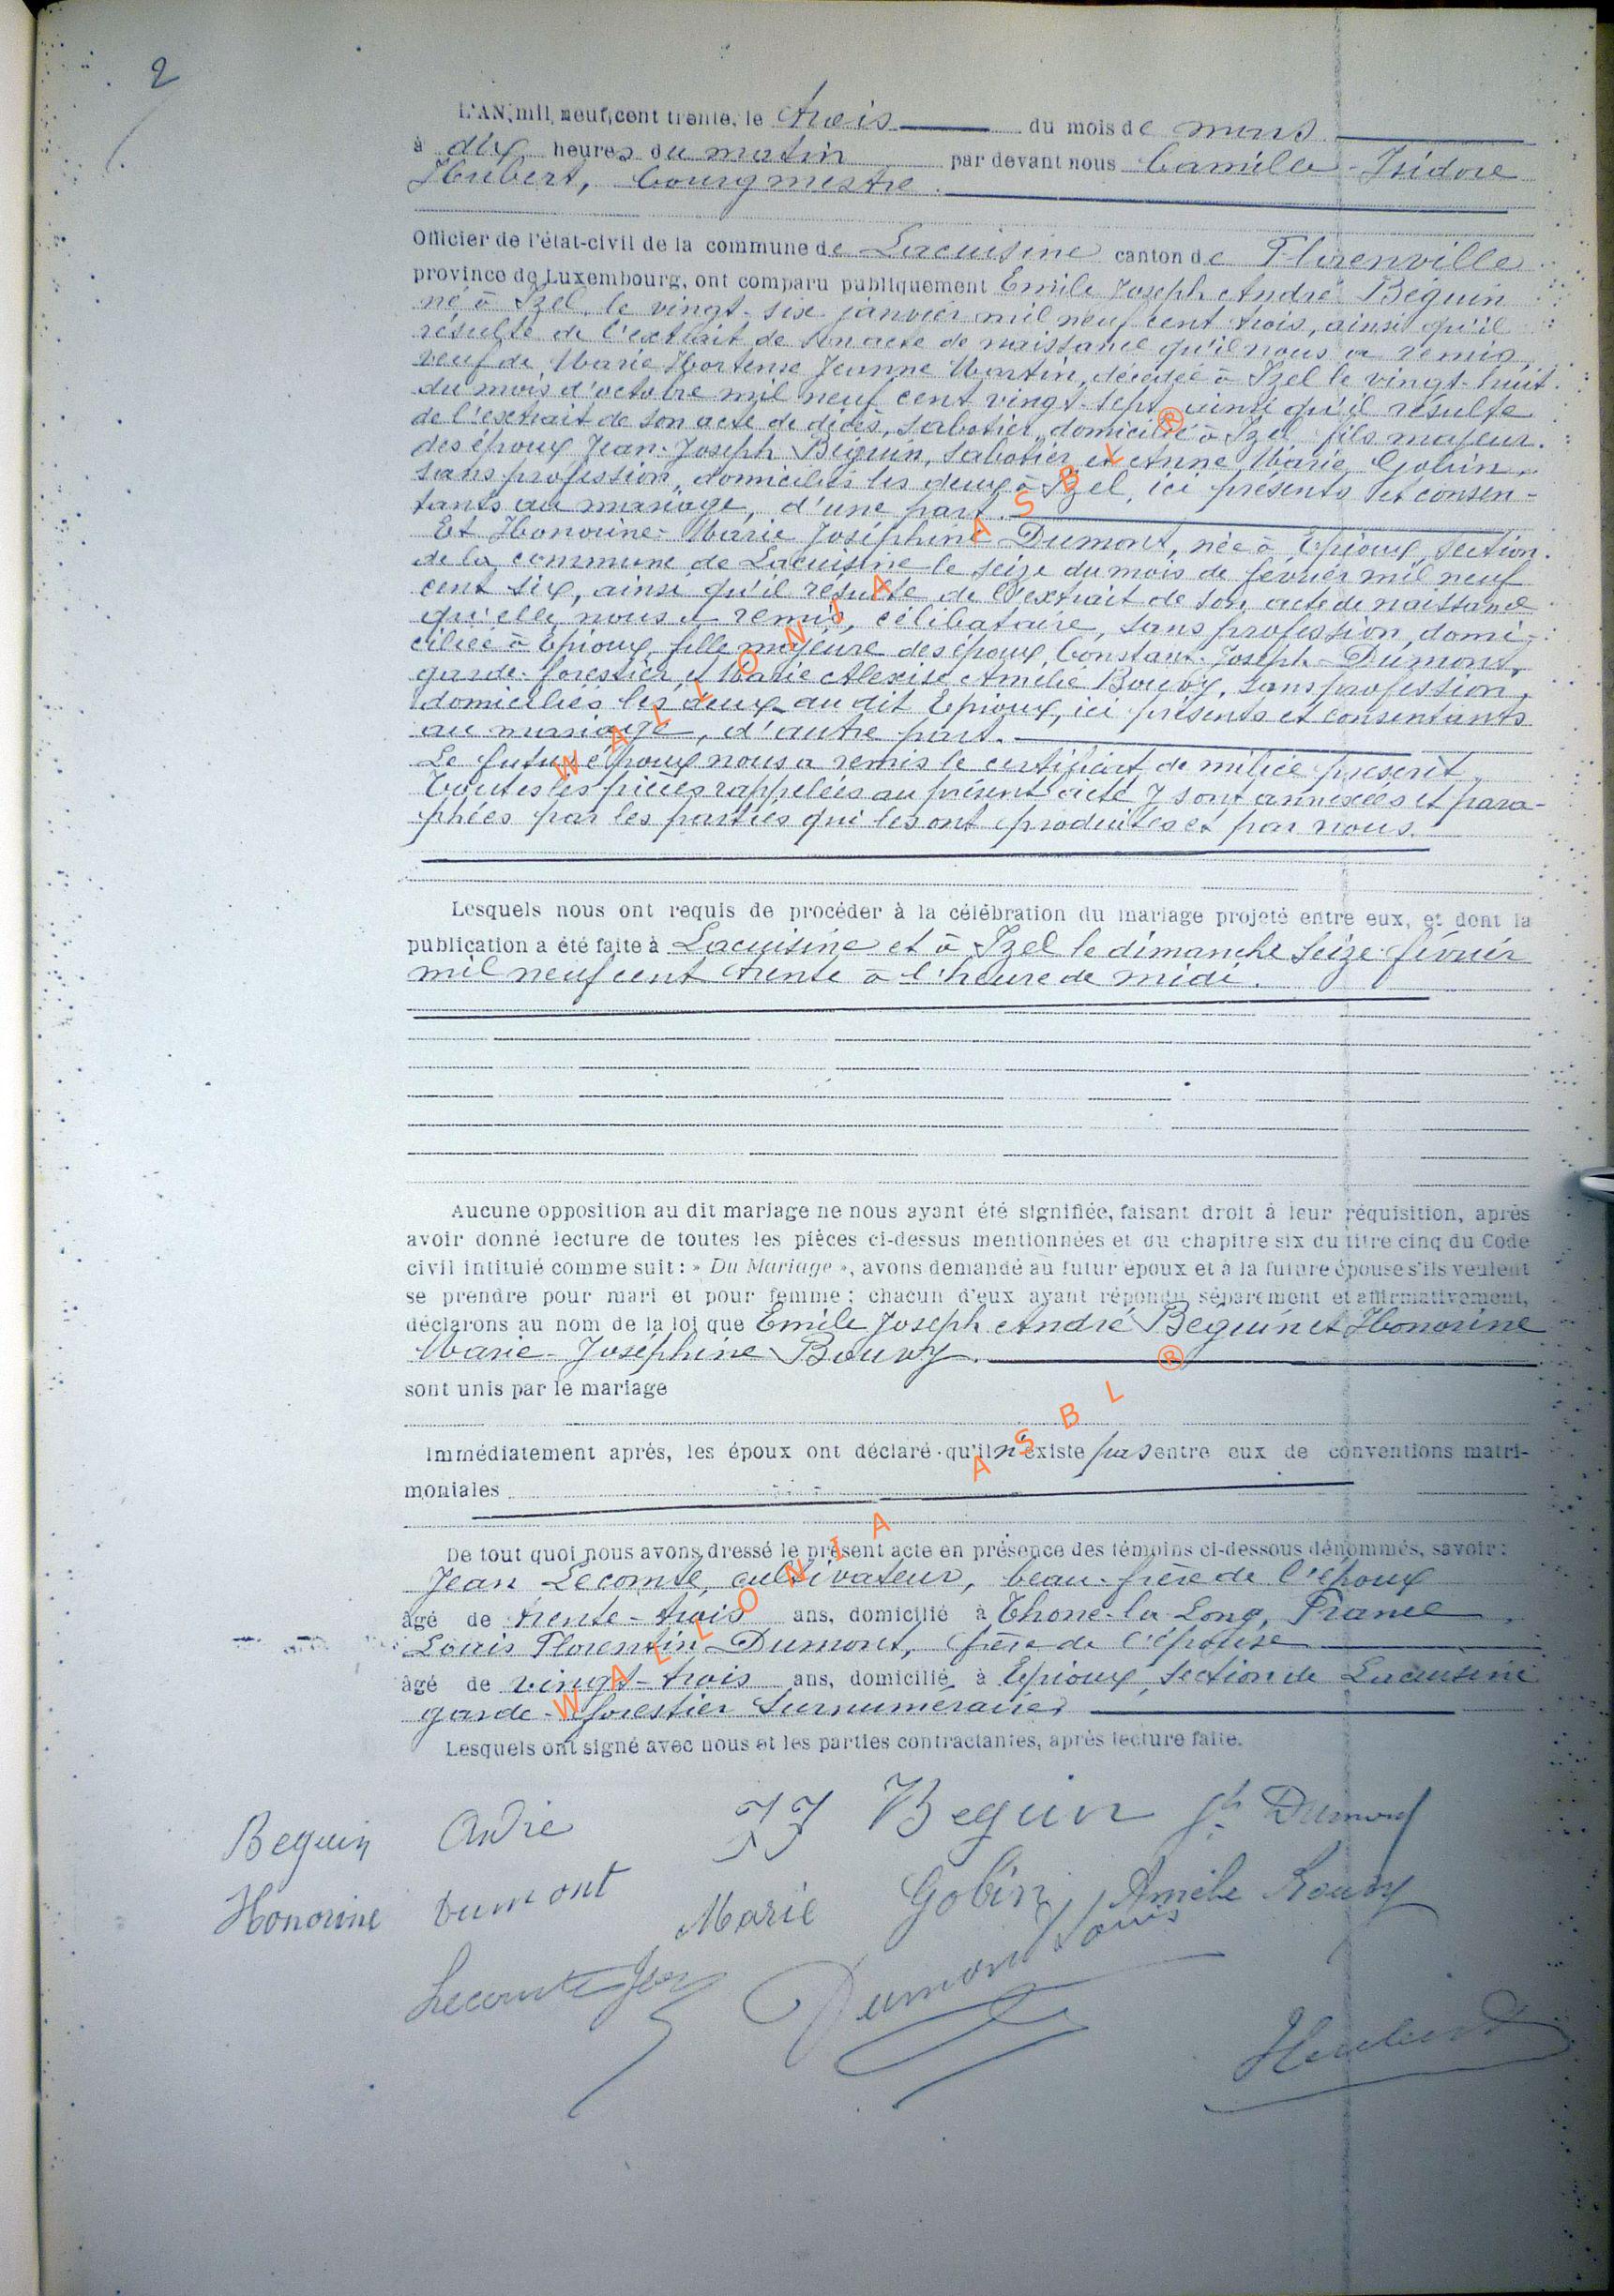 2
L'AN mil neuf cent trente, le trois du mois de mars
à dix heures du matin par devant nous Camille-Isidore
Hubert, bourgmestre.
Officier de l'état-civil de la commune de Lacuisine canton de Florenville
province de Luxembourg, ont comparu publiquement Emile Joseph André Béguin
né à Izel, le vingt-six janvier mil neuf cent trois, ainsi qu'il
résulte de l'extrait de son acte de naissance qu'il nous a remis,
veuf de Marie Hortense Jeanne Martin, décédée à Izel le vingt-huit
du mois d'octobre mil neuf cent vingt-sept ainsi qu'il résulte
de l'extrait de son acte de décès, sabotier, domicilié à Izel fils majeur
des époux Jean-Joseph Béguin, sabotier et Anne Marie Gobin,
sans profession, domiciliés les deux à Izel, ici présents et consen-
tants au mariage, d'une part.
Et Honorine-Marie Joséphine Dumont, née à Epioux, section
de la commune de Lacuisine le seize du mois de février mil neuf
cent six, ainsi qu'il résulte de l'extrait de son acte de naissance
qu'elle nous a remis, célibataire, sans profession, domi-
ciliée à Epioux, fille majeure des époux Constant-Joseph-Dumont,
garde-forestier et Marie Alexise Amélie Bouvy, sans profession,
domiciliés les deux au dit Epioux, ici présents et consentants
au mariage, d'autre part.
Le futur époux nous a remis le certificat de milice prescrit.
Toutes les pièces rappelées au présent acte y sont annexées et para-
phées par les parties qui les ont produites et par nous.
Lesquels nous ont requis de procéder à la célébration du mariage projeté entre eux, et dont la
publication a été faite à Lacuisine et à Izel le dimanche seize février
mil neuf cent trente à l'heure de midi.
Aucune opposition au dit mariage ne nous ayant été signifiée, faisant droit à leur réquisition, après
avoir donné lecture de toutes les pièces ci-dessus mentionnées et du chapitre six du titre cinq du Code
civil intitulé comme suit : « Du Mariage », avons demandé au futur époux et à la future épouse s'ils veulent
se prendre pour mari et pour femme ; chacun d'eux ayant répondu séparément et affirmativement,
déclarons au nom de la loi que Emile Joseph André Béguin et Honorine
Marie-Joséphine Bouvy.
sont unis par le mariage
Immédiatement après, les époux ont déclaré qu'il n'existe pas entre eux de conventions matri-
moniales
De tout quoi nous avons dressé le présent acte en présence des témoins ci-dessous dénommés, savoir :
Jean Lecomte, cultivateur, beau-frère de l'époux
âgé de trente-trois ans, domicilié à Thone-la-Long, France,
Louis Florentin Dumont, frère de l'épouse
âgé de vingt-trois ans, domicilié à Epioux, section de Lacuisine
garde-forestier surnuméraire,
Lesquels ont signé avec nous et les parties contractantes, après lecture faite.
Beguin André JJ Beguin Jh Dumont
Honorine Dumont Marie Gobin Amélie Bouvy
Lecomte Jean Dumont Louis
Hubert
WALLONIA ASBL ®
WALLONIA ASBL ®